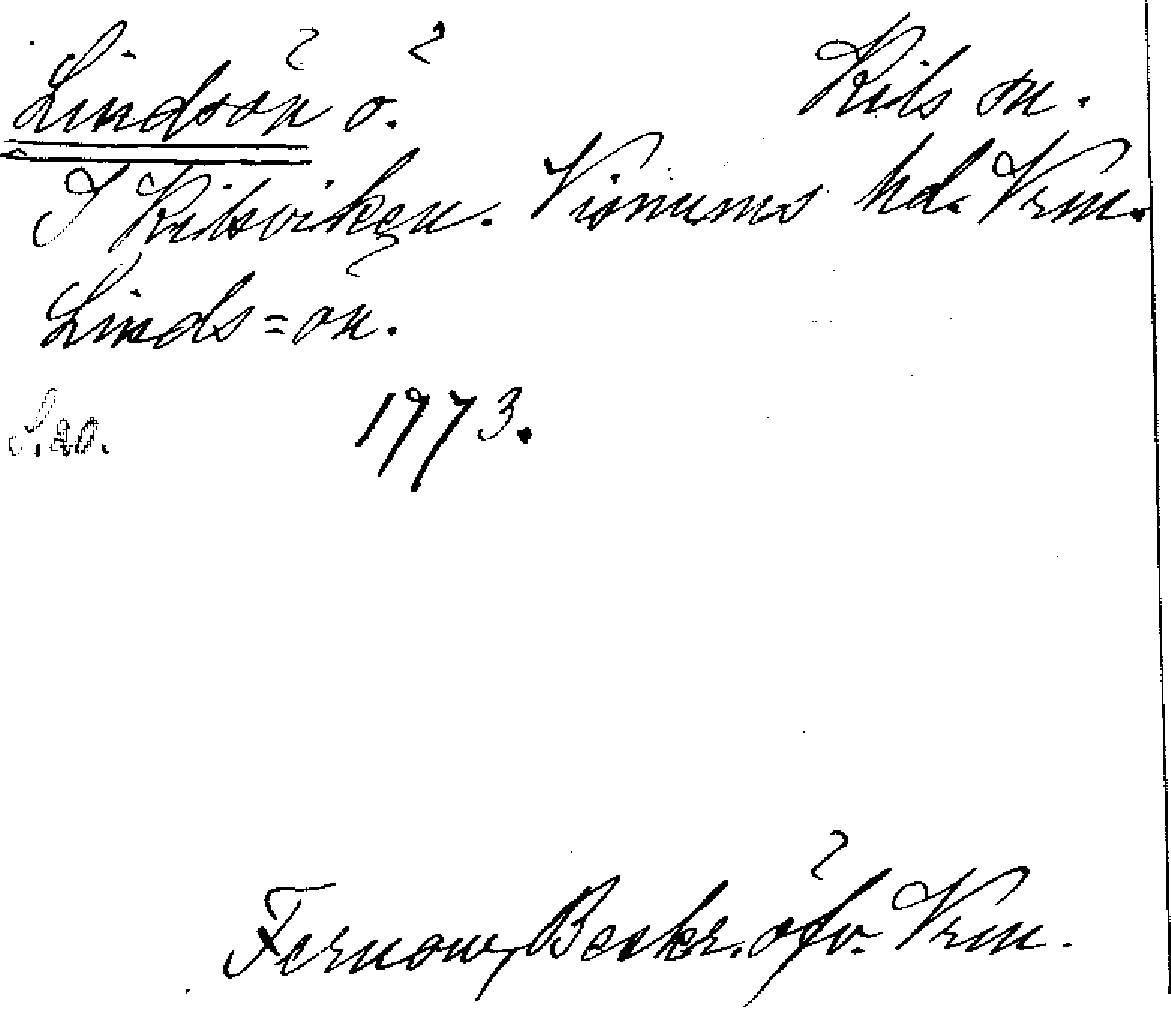 Lindsön ö. Kils sn.
I Kilsviken. Visnums hd. Vrm.
Linds=ön.
S. 20. 1773.
Fernow, Beskr. öfv. Vrm.